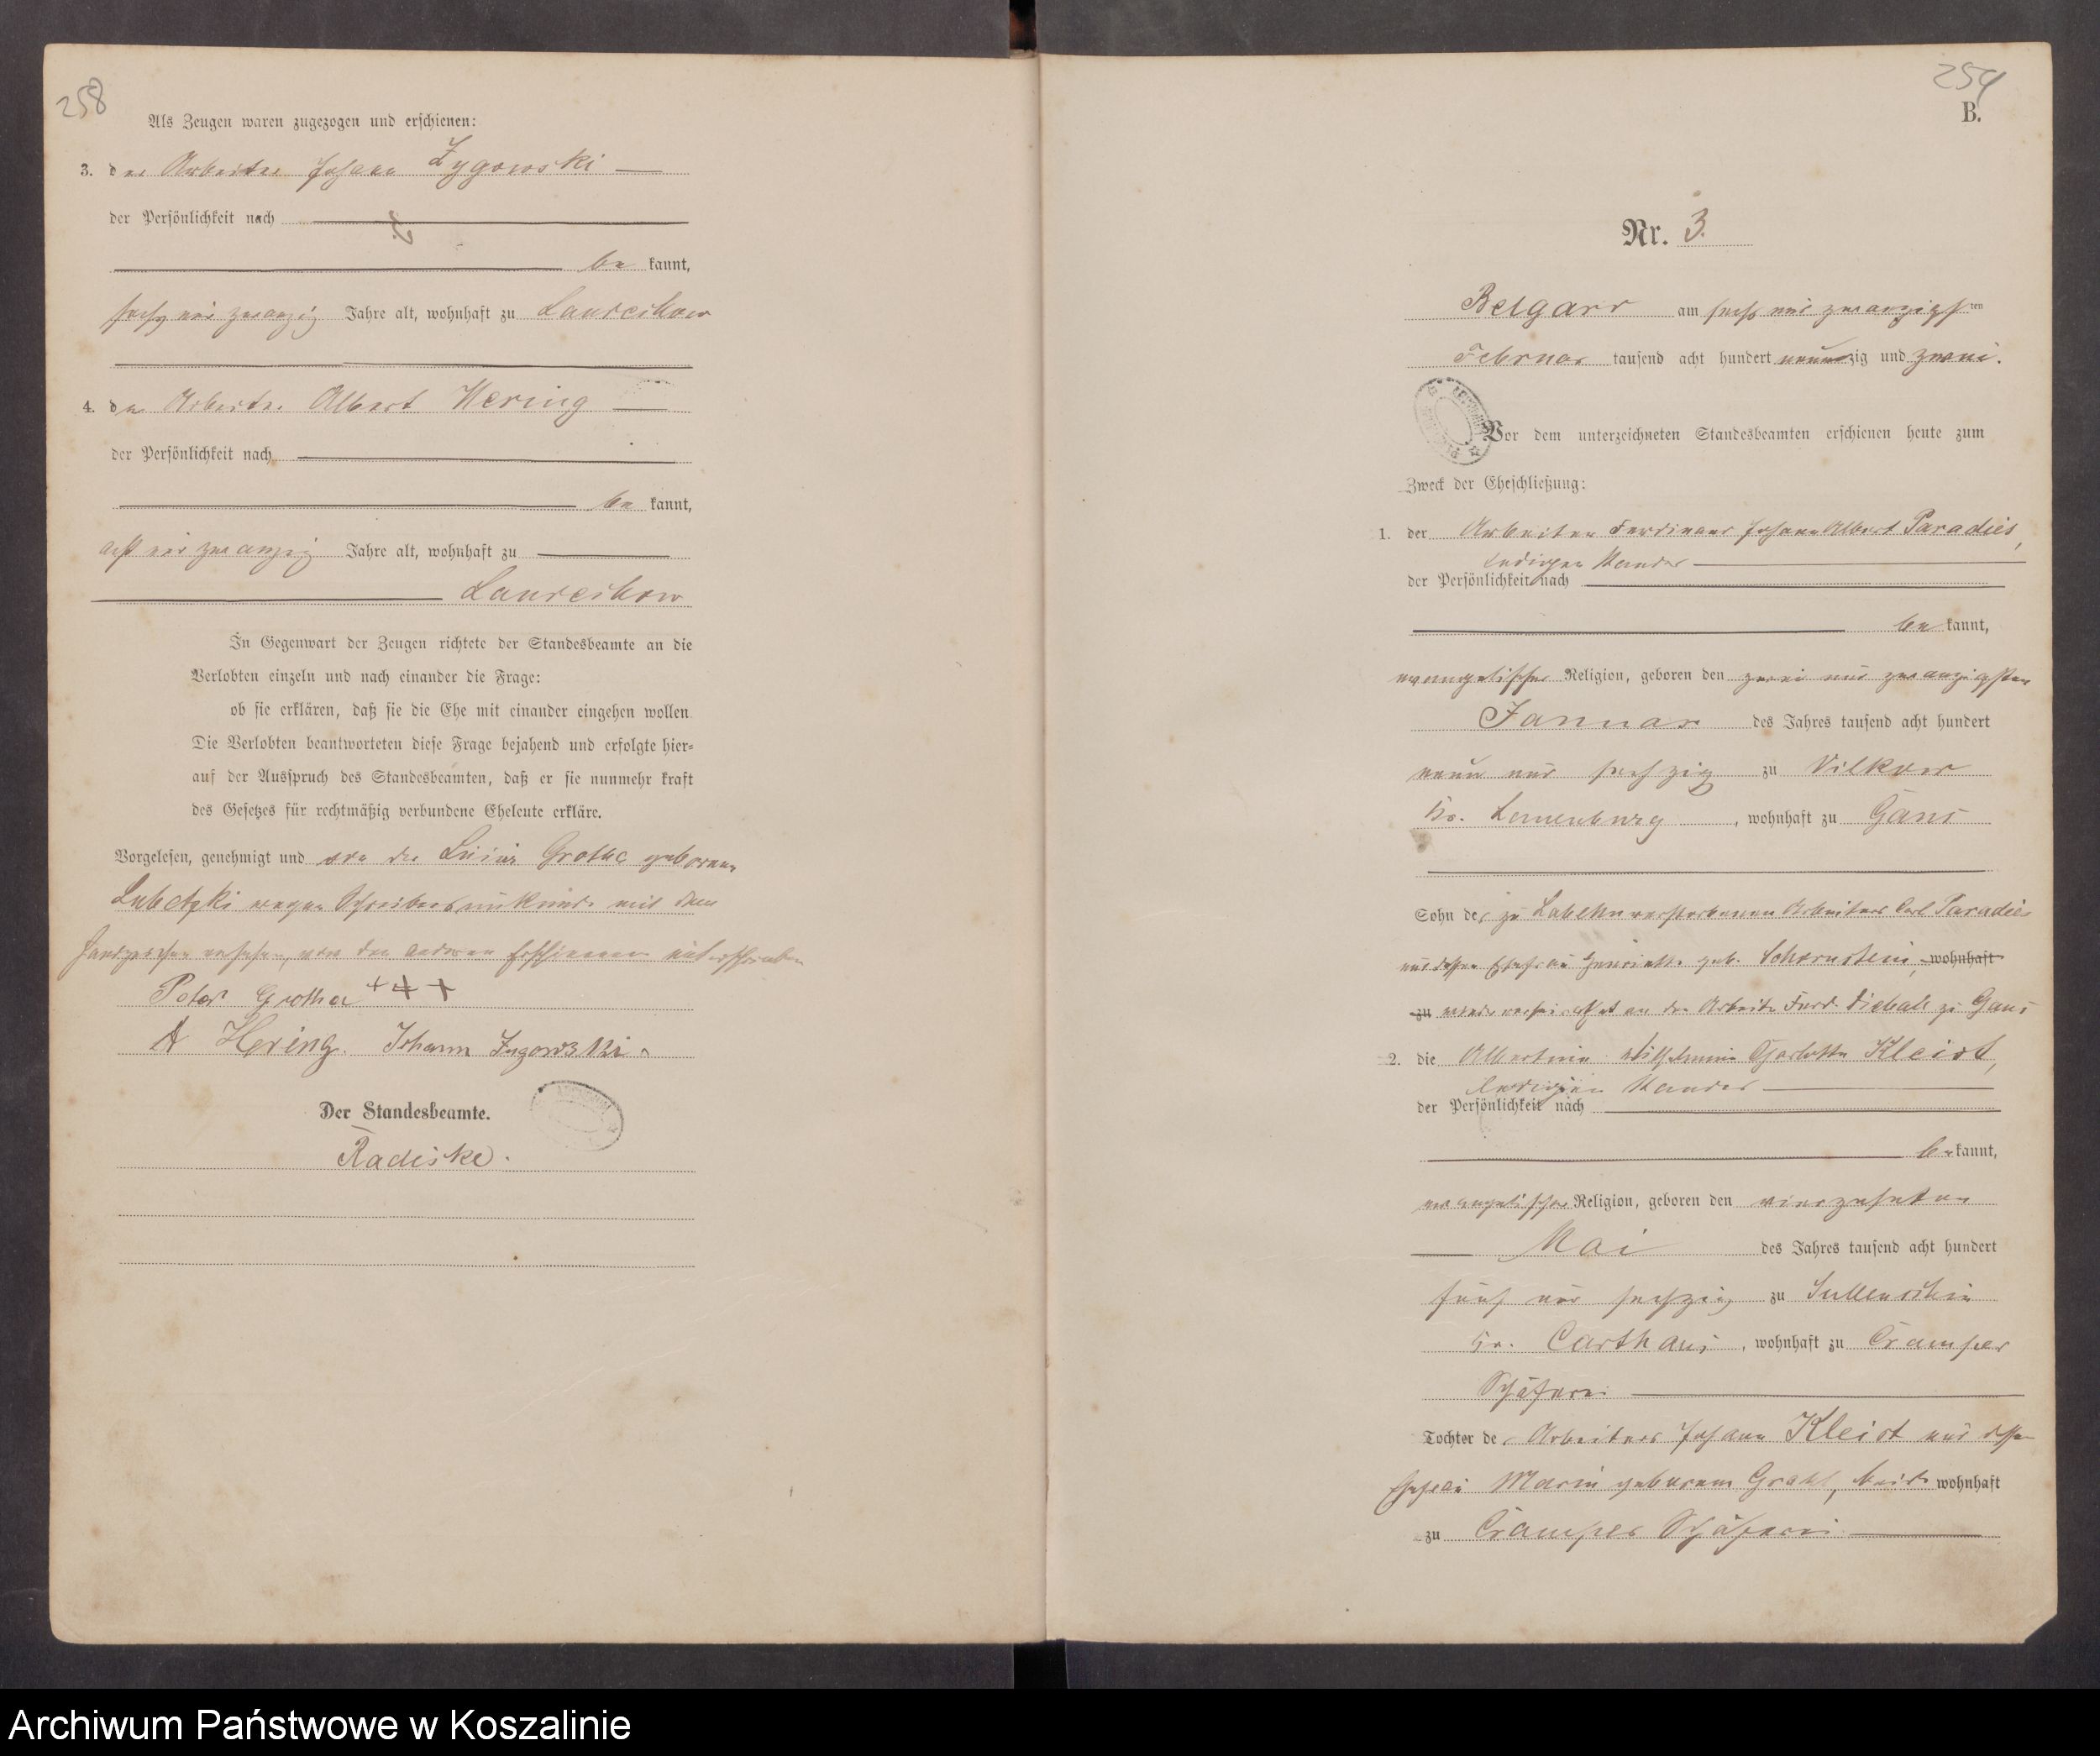 258
Als Zeugen waren zugezogen und erschienen:
3. der Arbeiter Johann Zygowski
der Persönlichkeit nach
be kannt,
sechs und zwanzig Jahre alt, wohnhaft zu Landechow
4. der Arbeiter Albert Hering
der Persönlichkeit nach
be kannt,
acht und zwanzig Jahre alt, wohnhaft zu
Landechow
In Gegenwart der Zeugen richtete der Standesbeamte an die
Verlobten einzeln und nach einander die Frage:
ob sie erklären, daß sie die Ehe mit einander eingehen wollen.
Die Verlobten beantworteten diese Frage bejahend und erfolgte hier=
auf der Ausspruch des Standesbeamten, daß er sie nunmehr kraft
des Gesetzes für rechtmäßig verbundene Eheleute erkläre.
Vorgelesen, genehmigt und von der Grothe geborene
Lubetzki wegen Schreibensunkunde mit dem
Handzeichen versehen, von den anderen Erschienenen unterschrieben
Peter Grothe +++
A Hering. Johann Zygowski
Der Standesbeamte.
Radeiske.
259
B.
Nr. 3.
Belgard am sechs und zwanzigsten
Februar tausend acht hundert neunzig und zwei.
Vor dem unterzeichneten Standesbeamten erschienen heute zum
Zweck der Eheschließung:
1. der Arbeiter Ferdinand Johann Albert Paradies,
ledigen Standes
der Persönlichkeit nach
be kannt,
evangelischer Religion, geboren den zwei und zwanzigsten
Januar des Jahres tausend acht hundert
neun und sechszig zu Vilkow
Kr. Lauenburg, wohnhaft zu Gans
Sohn des zu Labehn verstorbenen Arbeiters Carl Paradies
und dessen Ehefrau Henriette geb. Schornstein, wohnhaft
zu wieder verheirathet an den Arbeiter Ferd. zu Gans
2. die Albertine Wilhelmine Charlotte Kleist,
ledigen Standes
der Persönlichkeit nach
be kannt,
evangelischer Religion, geboren den vierzehnten
Mai des Jahres tausend acht hundert
fünf und sechszig zu Sullenschin
Kr. Carthaus, wohnhaft zu Cramper
Schäferei
Tochter des Arbeiters Johann Kleist und dessen
Ehefrau Marie geborene, beide wohnhaft
zu Cramper Schäferei
Archiwum Państwowe w Koszalinie